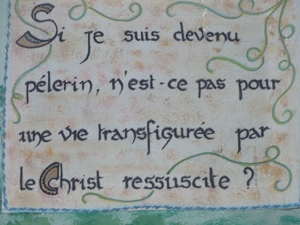 Si je suis devenu
pélerin, n'est-ce pas pour
une vie transfigurée par
le Christ ressuscite ?